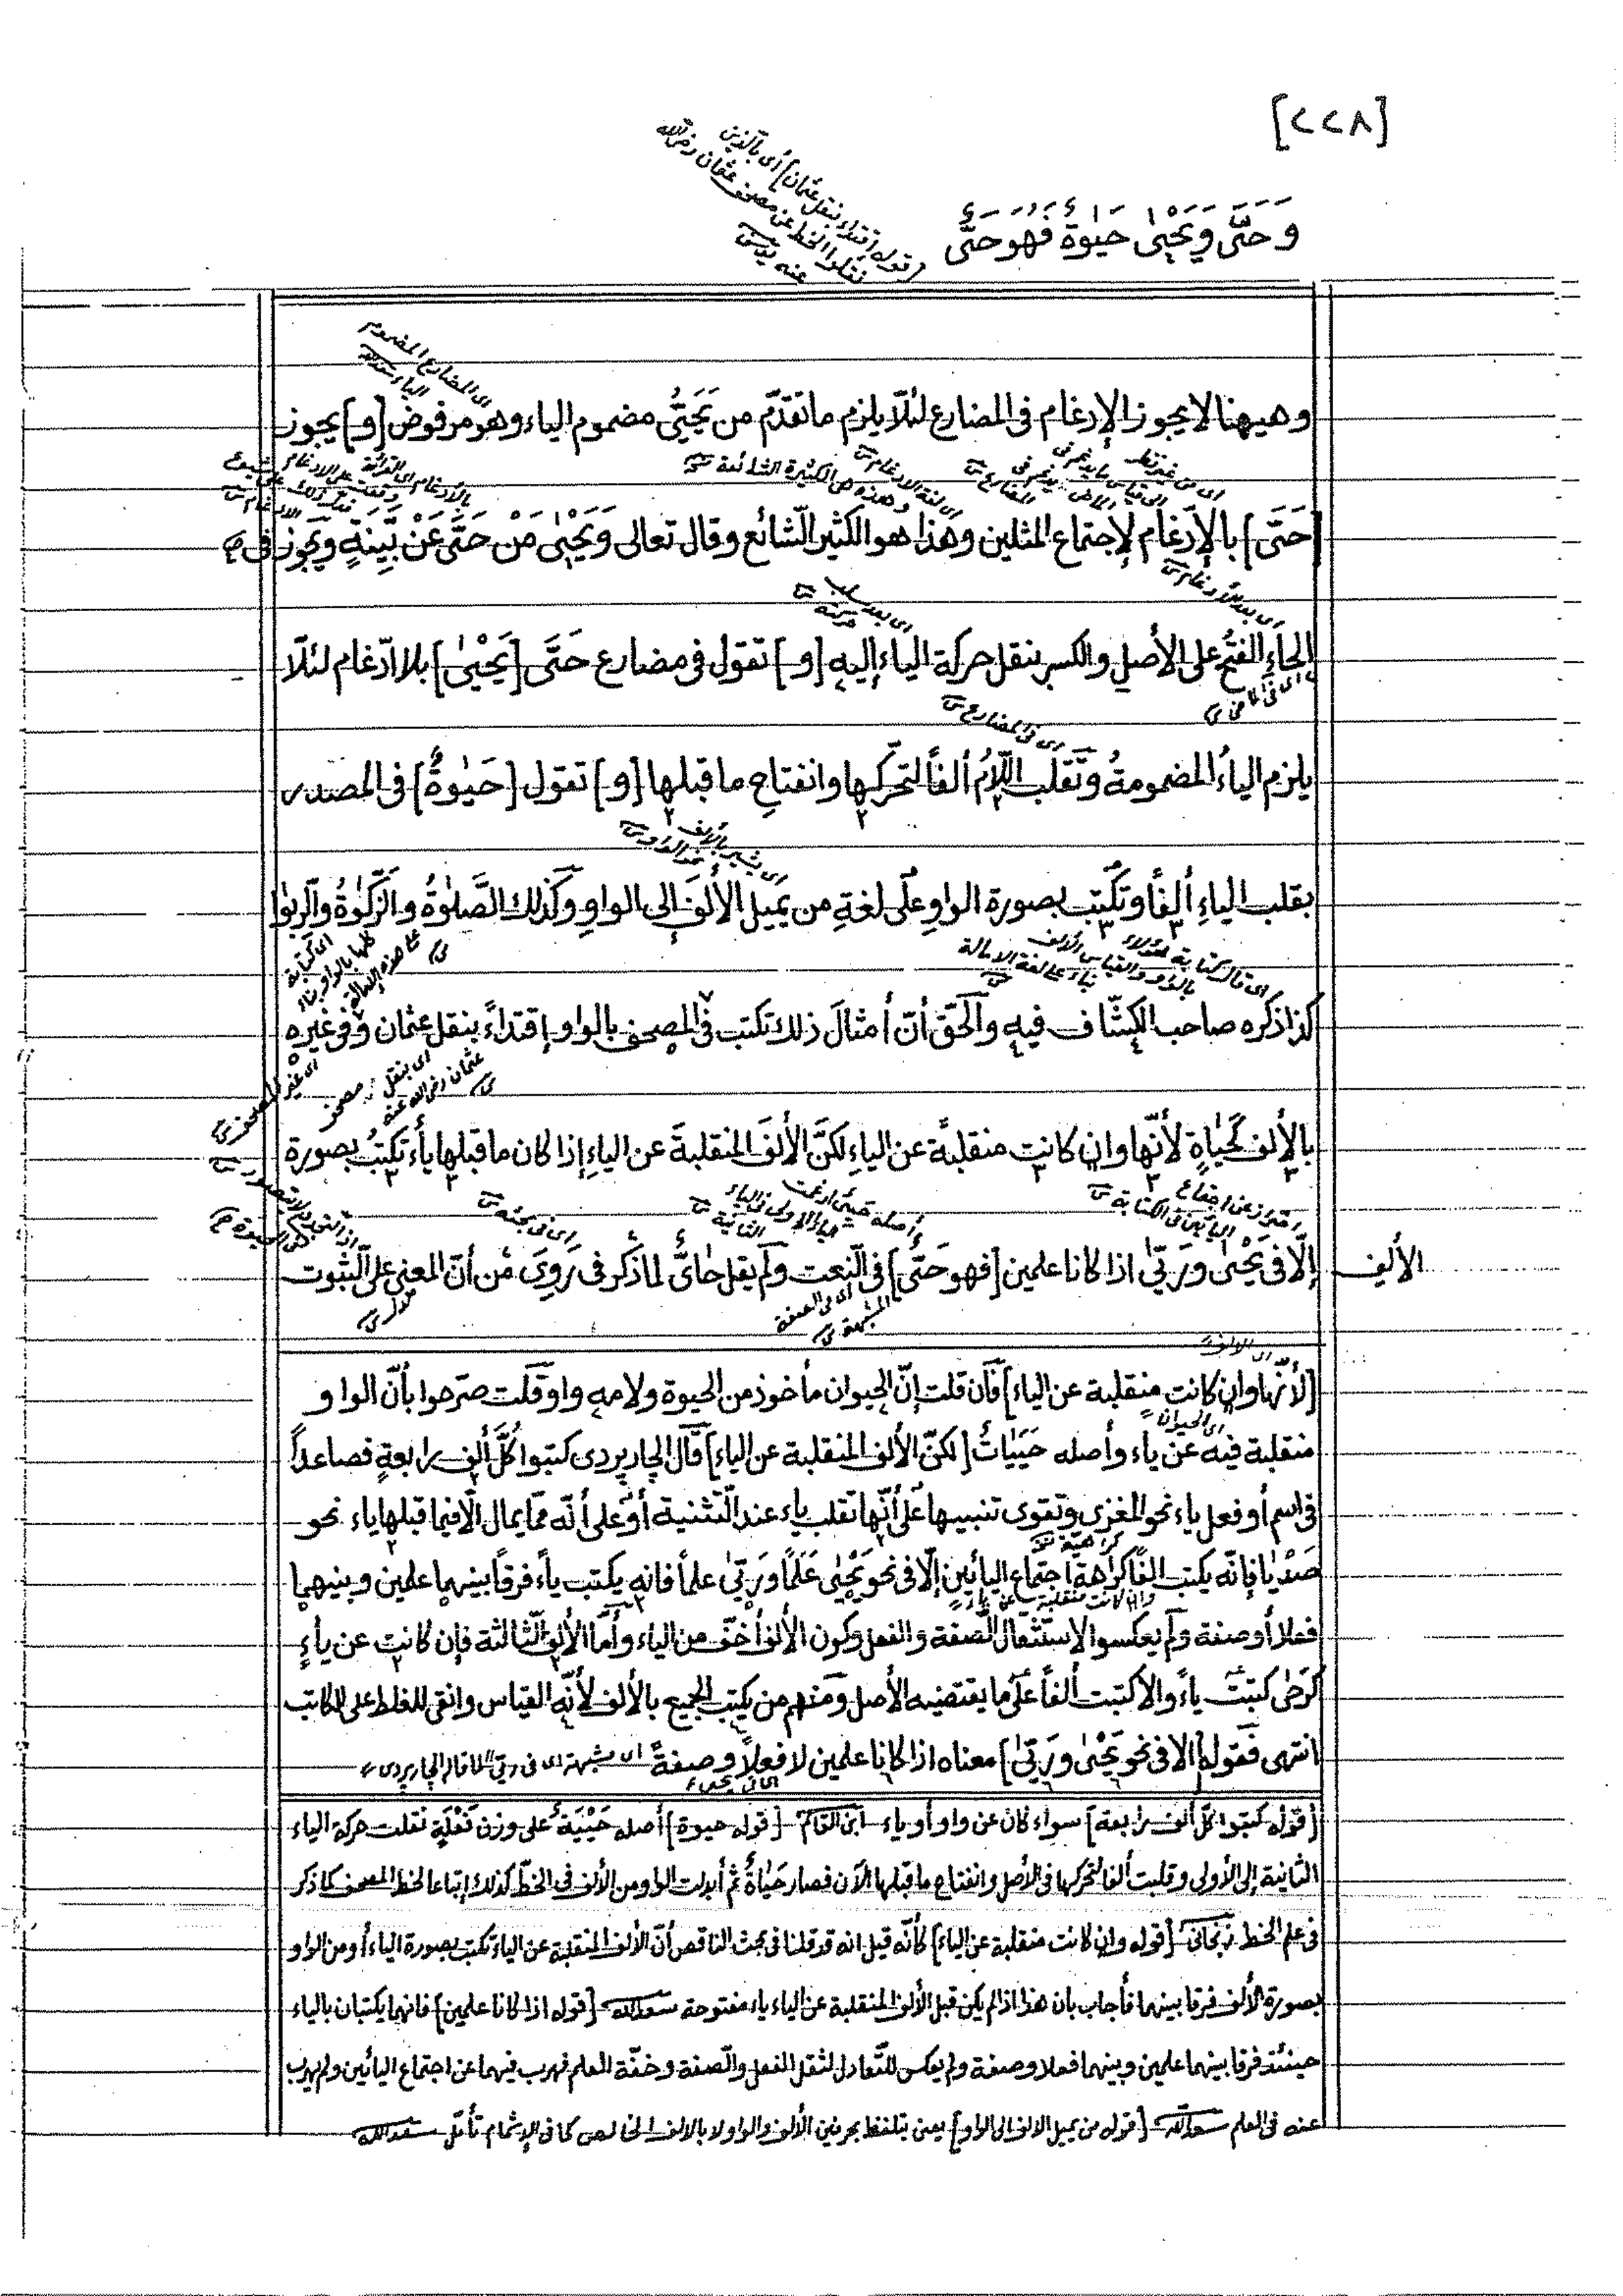 [٢٢٨]
وَحَىَّ وَيَحْيٰى حَيٰوةً فَهُوَ حَىٌّ
[قوله اقتداء بنقل عثمان] أى بالذين
نقلوا الخط عن مصحف عثمان رضى الله
عنه
اى المضارع المضموم
الياء سعدالله
وهيهنا لا يجوز الإدغام فى المضارع لئلّا يلزم ما تقدّم من يَحَىُّ مضموم الياء وهو مرفوض [و] يجوز
وهذه هى الكثيرة الشائعة
[حَىَّ] بالإدّغام لإجتماع المثلين وهذا هو الكثير الشّائع وقال تعالى وَيَحْيٰى مَنْ حَىَّ عَنْ بَيِّنَةٍ ويجوز فى
الحاءِ الفتحُ على الأصل والكسر بنقل حركة الياءِ إليه [و] تقول فى مضارع حَىَّ [يَحْيٰى] بلا ادّغام لئلّا
اى فى الماضى
اى فى المضارع
يلزم الياءُ المضمومةُ وتقلب اللّامُ ألفاً لتحرّكها وانفتاحِ ما قبلها [و] تقول [حَيٰوةً] فى المصدر
بقلب الياءِ ألفاً وتكتب بصورة الواوِ على لغةِ من يميل الألفَ إلى الواوِ وكذلك الصَّلٰوةُ والزَّكٰوةُ والرّبٰوا
اى كتابة
كلها بالواو بناء
على هذه الإمالة
كذا ذكره صاحب الكشّاف فيه والحَقّ أنّ أمثالَ ذلك تكتب فى المصحف بالواو إقتداءً بنقل عثمان وفى غيره
اى بنقل مصحف
عثمان رضى الله عنه
اى غير المصحف
بالألف كَحَيٰاةٍ لأنّها وإن كانت منقلبةً عن الياءِ لكنَّ الألفَ المنقلبةَ عن الياءِ إذا كان ما قبلها ياًء تكتبُ بصورة
احترز عن اجتماع
اليائين فى الكتابة
الألِفِ
إلّا فى يَحْيٰى ورَيّٰى اذا كانا علمين [فهو حَىٌّ] فى النّعت ولم يقل حٰاىٌّ لما ذكر فى رَوِىَ مْن أنّ المعنى على الثّبوت
اى فى الصفة
المشبهة
اى الالف
[لأنّها وإن كانت منقلبة عن الياء] فإن قلت إنّ الحيوان مأخوذ من الحيوة ولامه واو قلت صرّحوا بأنّ الواو
اى الحيوان
منقلبة فيه عن ياء وأصله حَيَيٰانٌ [لكنّ الألف المنقلبة عن الياء] قال الجاربردى كتبوا كُلَّ ألف رابعةٍ فصاعداً
فى اسم أو فعل ياء نحو المغزى وتقوى تنبيهاً على أنّها تقلب ياء عند التّثنية أو على أنّه ممّا يمال الّا فيما قبلها ياء نحو
صَدْيٰا فإنّه يكتب الفاً كراهة اجتماع اليائين إلّا فى نحو يَحْيٰى عَلَمًا ورَيّٰى علماً فانه يكتب ياءً فرقاً بينهما علمين وبينهما
فعلا أو صفة ولم يعكسوا لاستثقال الصّفة والفعل وكون الألف أخفّ من الياء وأمّا الألف الثّالثة فإن كانت عن ياءٍ
كرَحٰى كتبت ياءً والا كتبت ألفاً على ما يقتضيه الأصل ومنهم من يكتب الجميع بالألف لأنّه القياس وانقى للغلط على الكاتب
انتهى فقوله [إلا فى نحو يَحْيٰى ورَيّٰى] معناه اذا كانا علمين لا فعلاً وصفةً اى مشبهة اى فى ريّى لما قال الجاربردى
[قوله كتبوا كلّ ألف رابعة] سواء كان عن واو أو ياء ابن القاسم [قوله حيوة] أصله حَيْيَةٌ على وزن فَعْلَةٍ نقلت حركة الياء
الثانية إلى الأولى وقلبت ألفا لتحركها فى الأصل وانفتاح ما قبلها الآن فصار حَيٰاةً ثم أبدلت الواو من الألف فى الخطّ كذلك إتباعا لخط المصحف كما ذكر
فى علم الخط زنجانى [قوله وإن كانت منقلبة عن الياء] كأنّه قيل انه قد قلنا فى بحث الناقص أنّ الألف المنقلبة عن الياء تكتب بصورة الياء أو من الواو
بصورة الألف فرقا بينهما فأجاب بان هذا اذا لم يكن قبل الألف المنقلبة عن الياء ياء مفتوحة سعدالله [قوله اذا كانا علمين] فانهما يكتبان بالياء
حينئذ فرقا بينهما علمين وبينهما فعلا وصفة ولم يعكس للتّعادل لثقل الفعل والصّفة وخفّة العلم فهرب فيهما عن اجتماع اليائين ولم يهرب
عنه فى العلم سعدالله [قوله من يميل الالف الى الواو] يعنى يتلفظ بحرف بين الألف والواو لا بالالف الخالص كما فى الإشمام تأمّل سعدالله